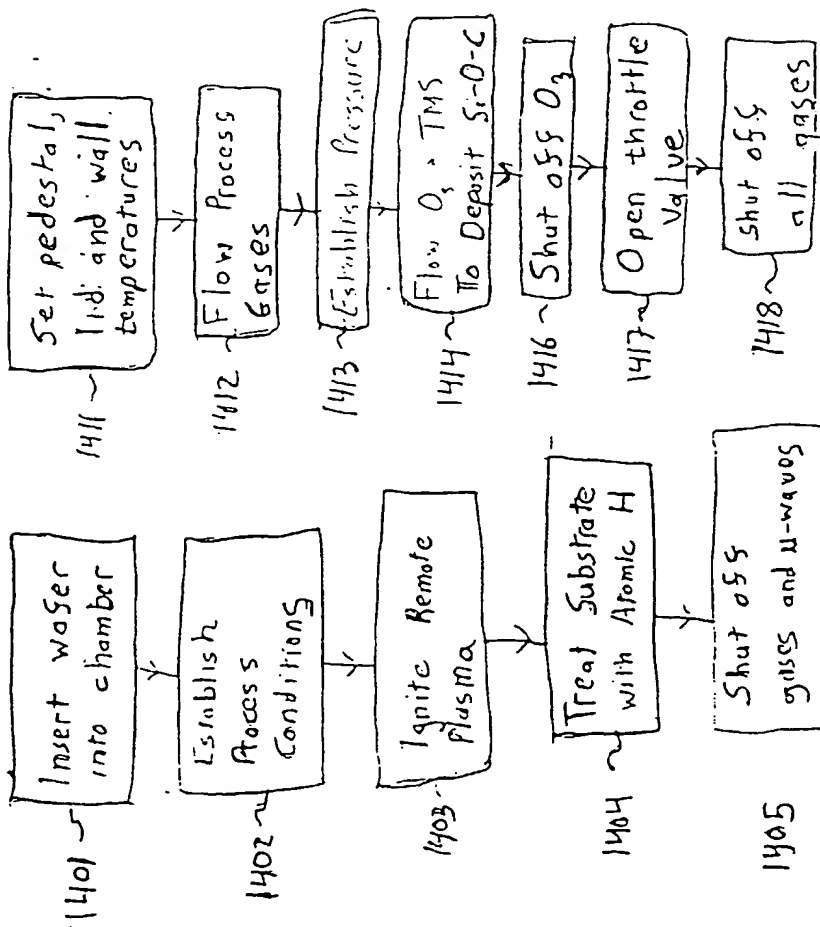 1401
Insert wafer
into chamber
1402
Establish
Process
Conditions
1403
Ignite Remote
Plasma
1404
Treat Substrate
with Atomic H
1405
Shut off
gases and μ-waves
1411
Set pedestal,
lid and wall
temperatures
1412
Flow Process
Gases
1413
Establish Pressure
1414
Flow O₃ + TMS
To Deposit Si-O-C
1416
Shut off O₃
1417
Open throttle
Valve
1418
Shut off
all gases